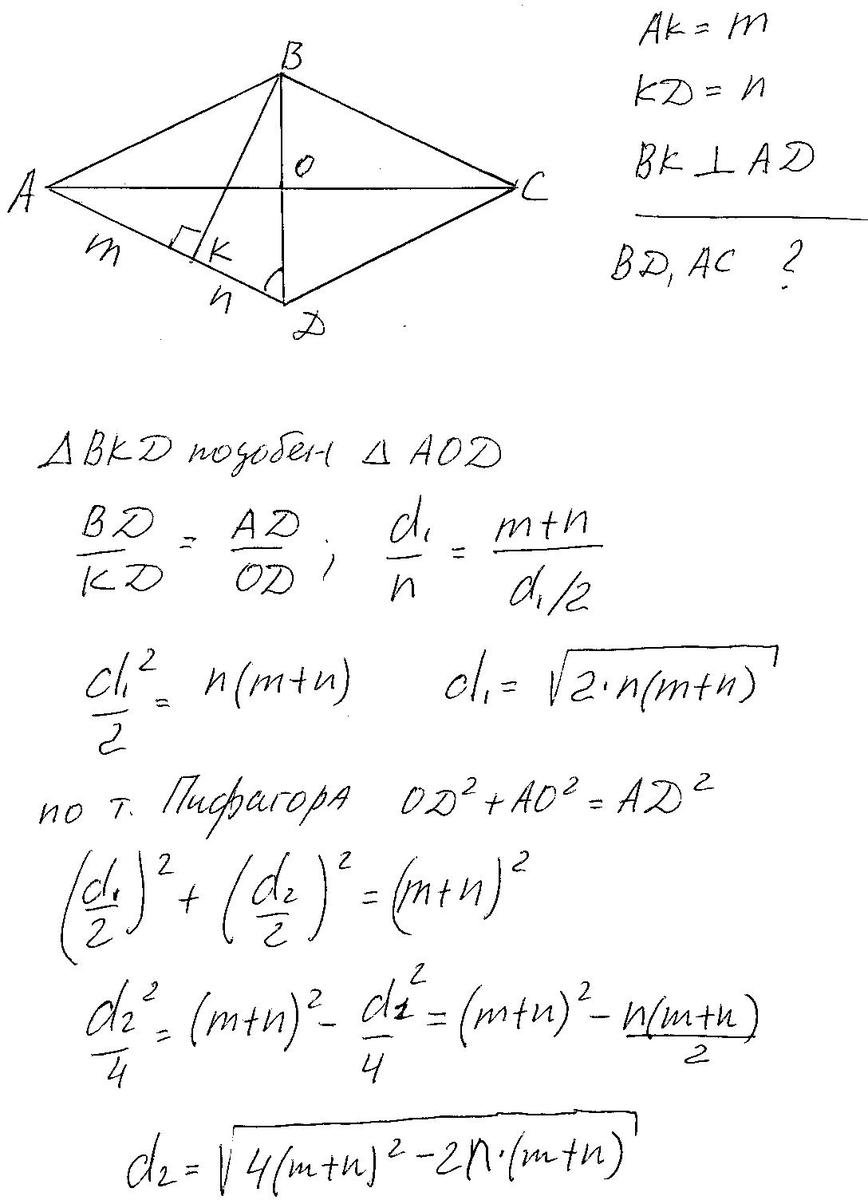 B
A
O
C
m
K
n
D
AK = m
KD = n
BK ⊥ AD
BD, AC ?
Δ BKD подобен Δ AOD
BD/KD = AD/OD ; d₁/n = (m+n)/(d₁/2)
d₁²/2 = n(m+n) d₁ = √(2·n(m+n))
по т. Пифагора OD² + AO² = AD²
(d₁/2)² + (d₂/2)² = (m+n)²
d₂²/4 = (m+n)² - d₁²/4 = (m+n)² - n(m+n)/2
d₂ = √(4(m+n)² - 2n·(m+n))